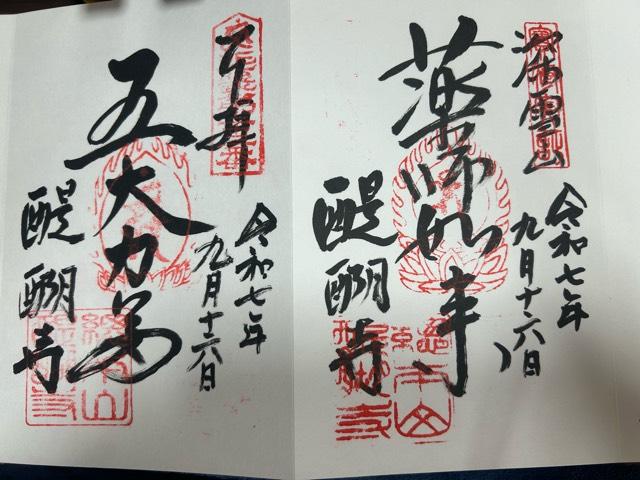 深雪山
薬師如来
令和七年
九月十六日
醍醐寺
奉拝
五大力尊
令和七年
九月十六日
醍醐寺